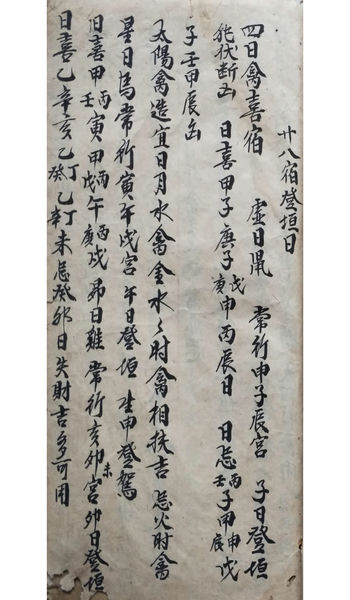 廿八宿登垣日
四日禽喜宿 虛日鼠 常行申子辰宮 子日登垣
能伏斷凶 日喜甲子庚子戊庚申丙辰日 日忌丙壬子甲申庚戌
子壬甲辰凶
太陽禽造宜日月水禽金水〻時禽相扶吉 忌火時禽
星日馬常行寅午戌宮 午日登垣 生申登駕
日喜甲丙壬寅甲丙戊午丙庚戌 昴日雞 常行亥卯未宮 卯日登垣
日喜乙辛亥乙丁癸乙丁辛未忌癸卯日失財吉多可用